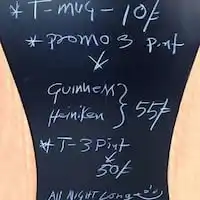 * T-MUG - 10/-
* PROMO 3 Pint
↓
GuinneM
Heiniken } 55/-
* T-3 Pint
↓
50/-
All Night Long